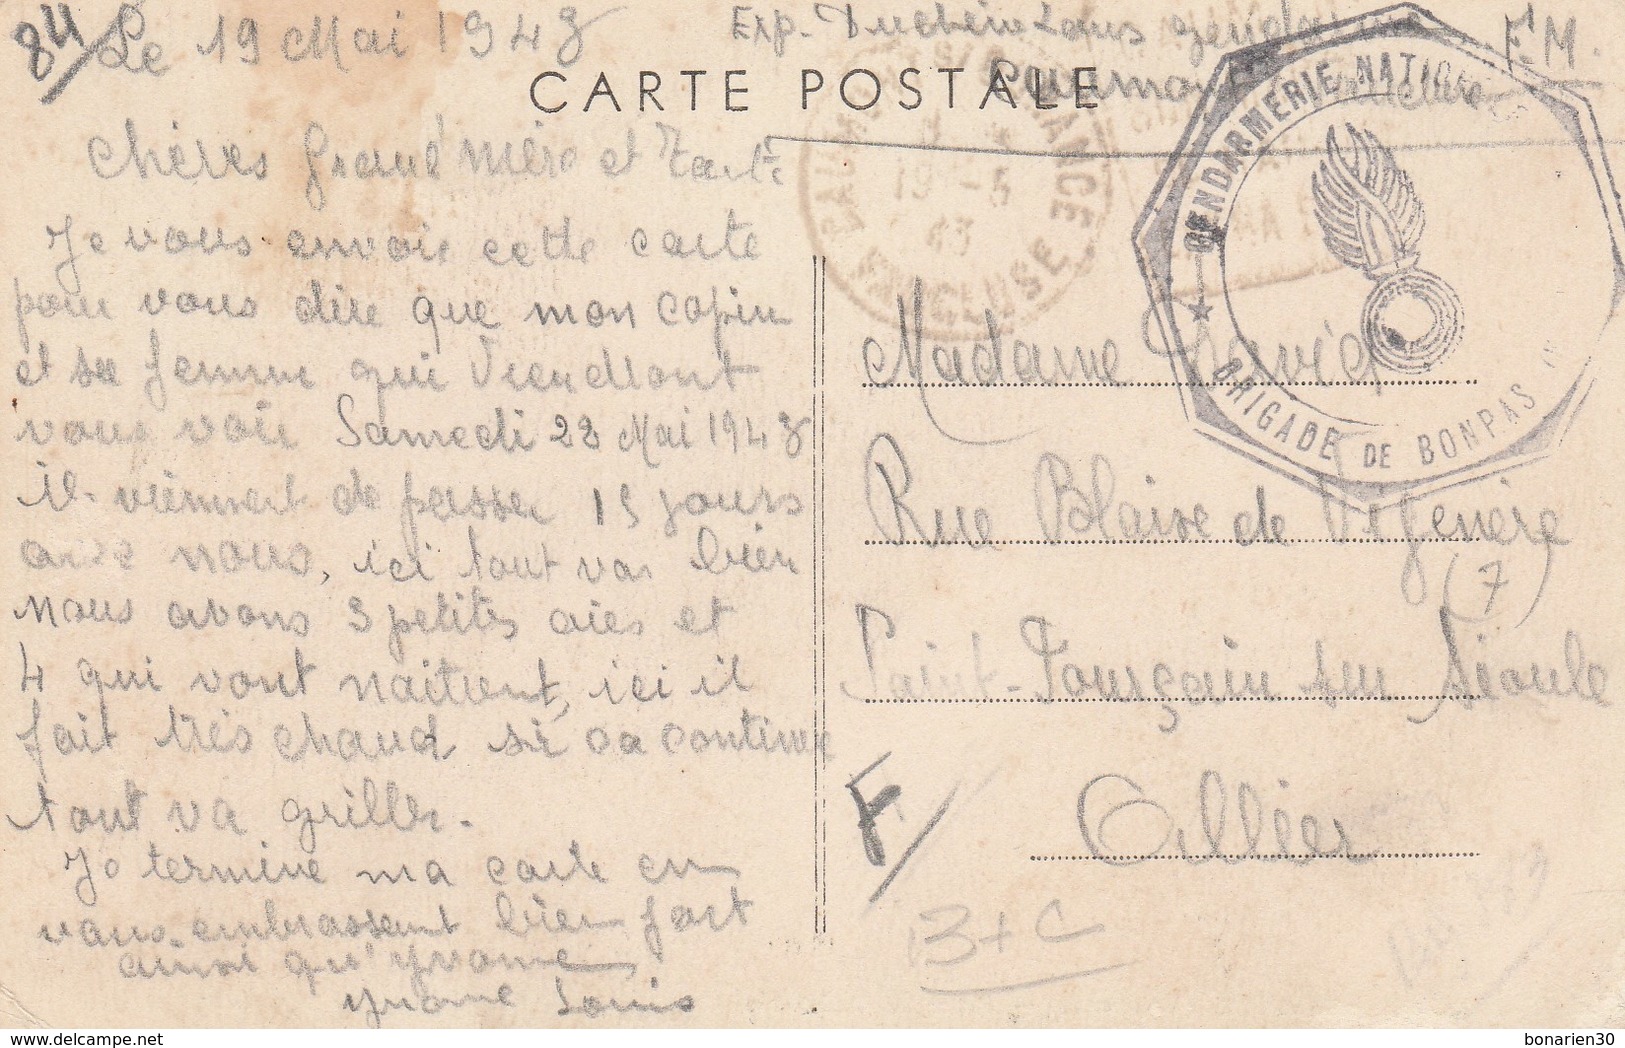 84
Le 19 Mai 1943
Exp. Duchein Louis gendarme
F.M.
CARTE POSTALE
Vaucluse
Chères Grand'Mère et Tante
Je vous envoie cette carte
pour vous dire que mon copin
et sa femme qui viendront
vous voir Samedi 22 Mai 1943
il viennent de passer 15 jours
avec nous, ici tout va bien
nous avons 3 petites oies et
4 qui vont naitrent, ici il
fait très chaud si ca continue
tout va griller.
Je termine ma carte en
vous embrassent bien fort
ainsi qu'Yvonne
Yvonne Louis
19 -5
43
VAUCLUSE
GENDARMERIE NATIONALE
BRIGADE DE BONPAS
Madame David
Rue Blaise de Vigenère
(7)
Saint-Pourçain sur Sioule
Allier
F
B+C
bonarien30